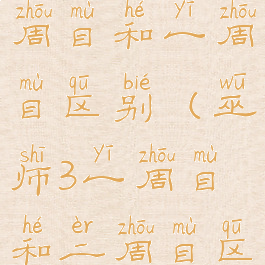 zhōu mù hé yī zhōu
周目和一周
mù qū bié wū
目区别（巫
shī yī zhōu mù
师3一周目
hé èr zhōu mù qū
和二周目区